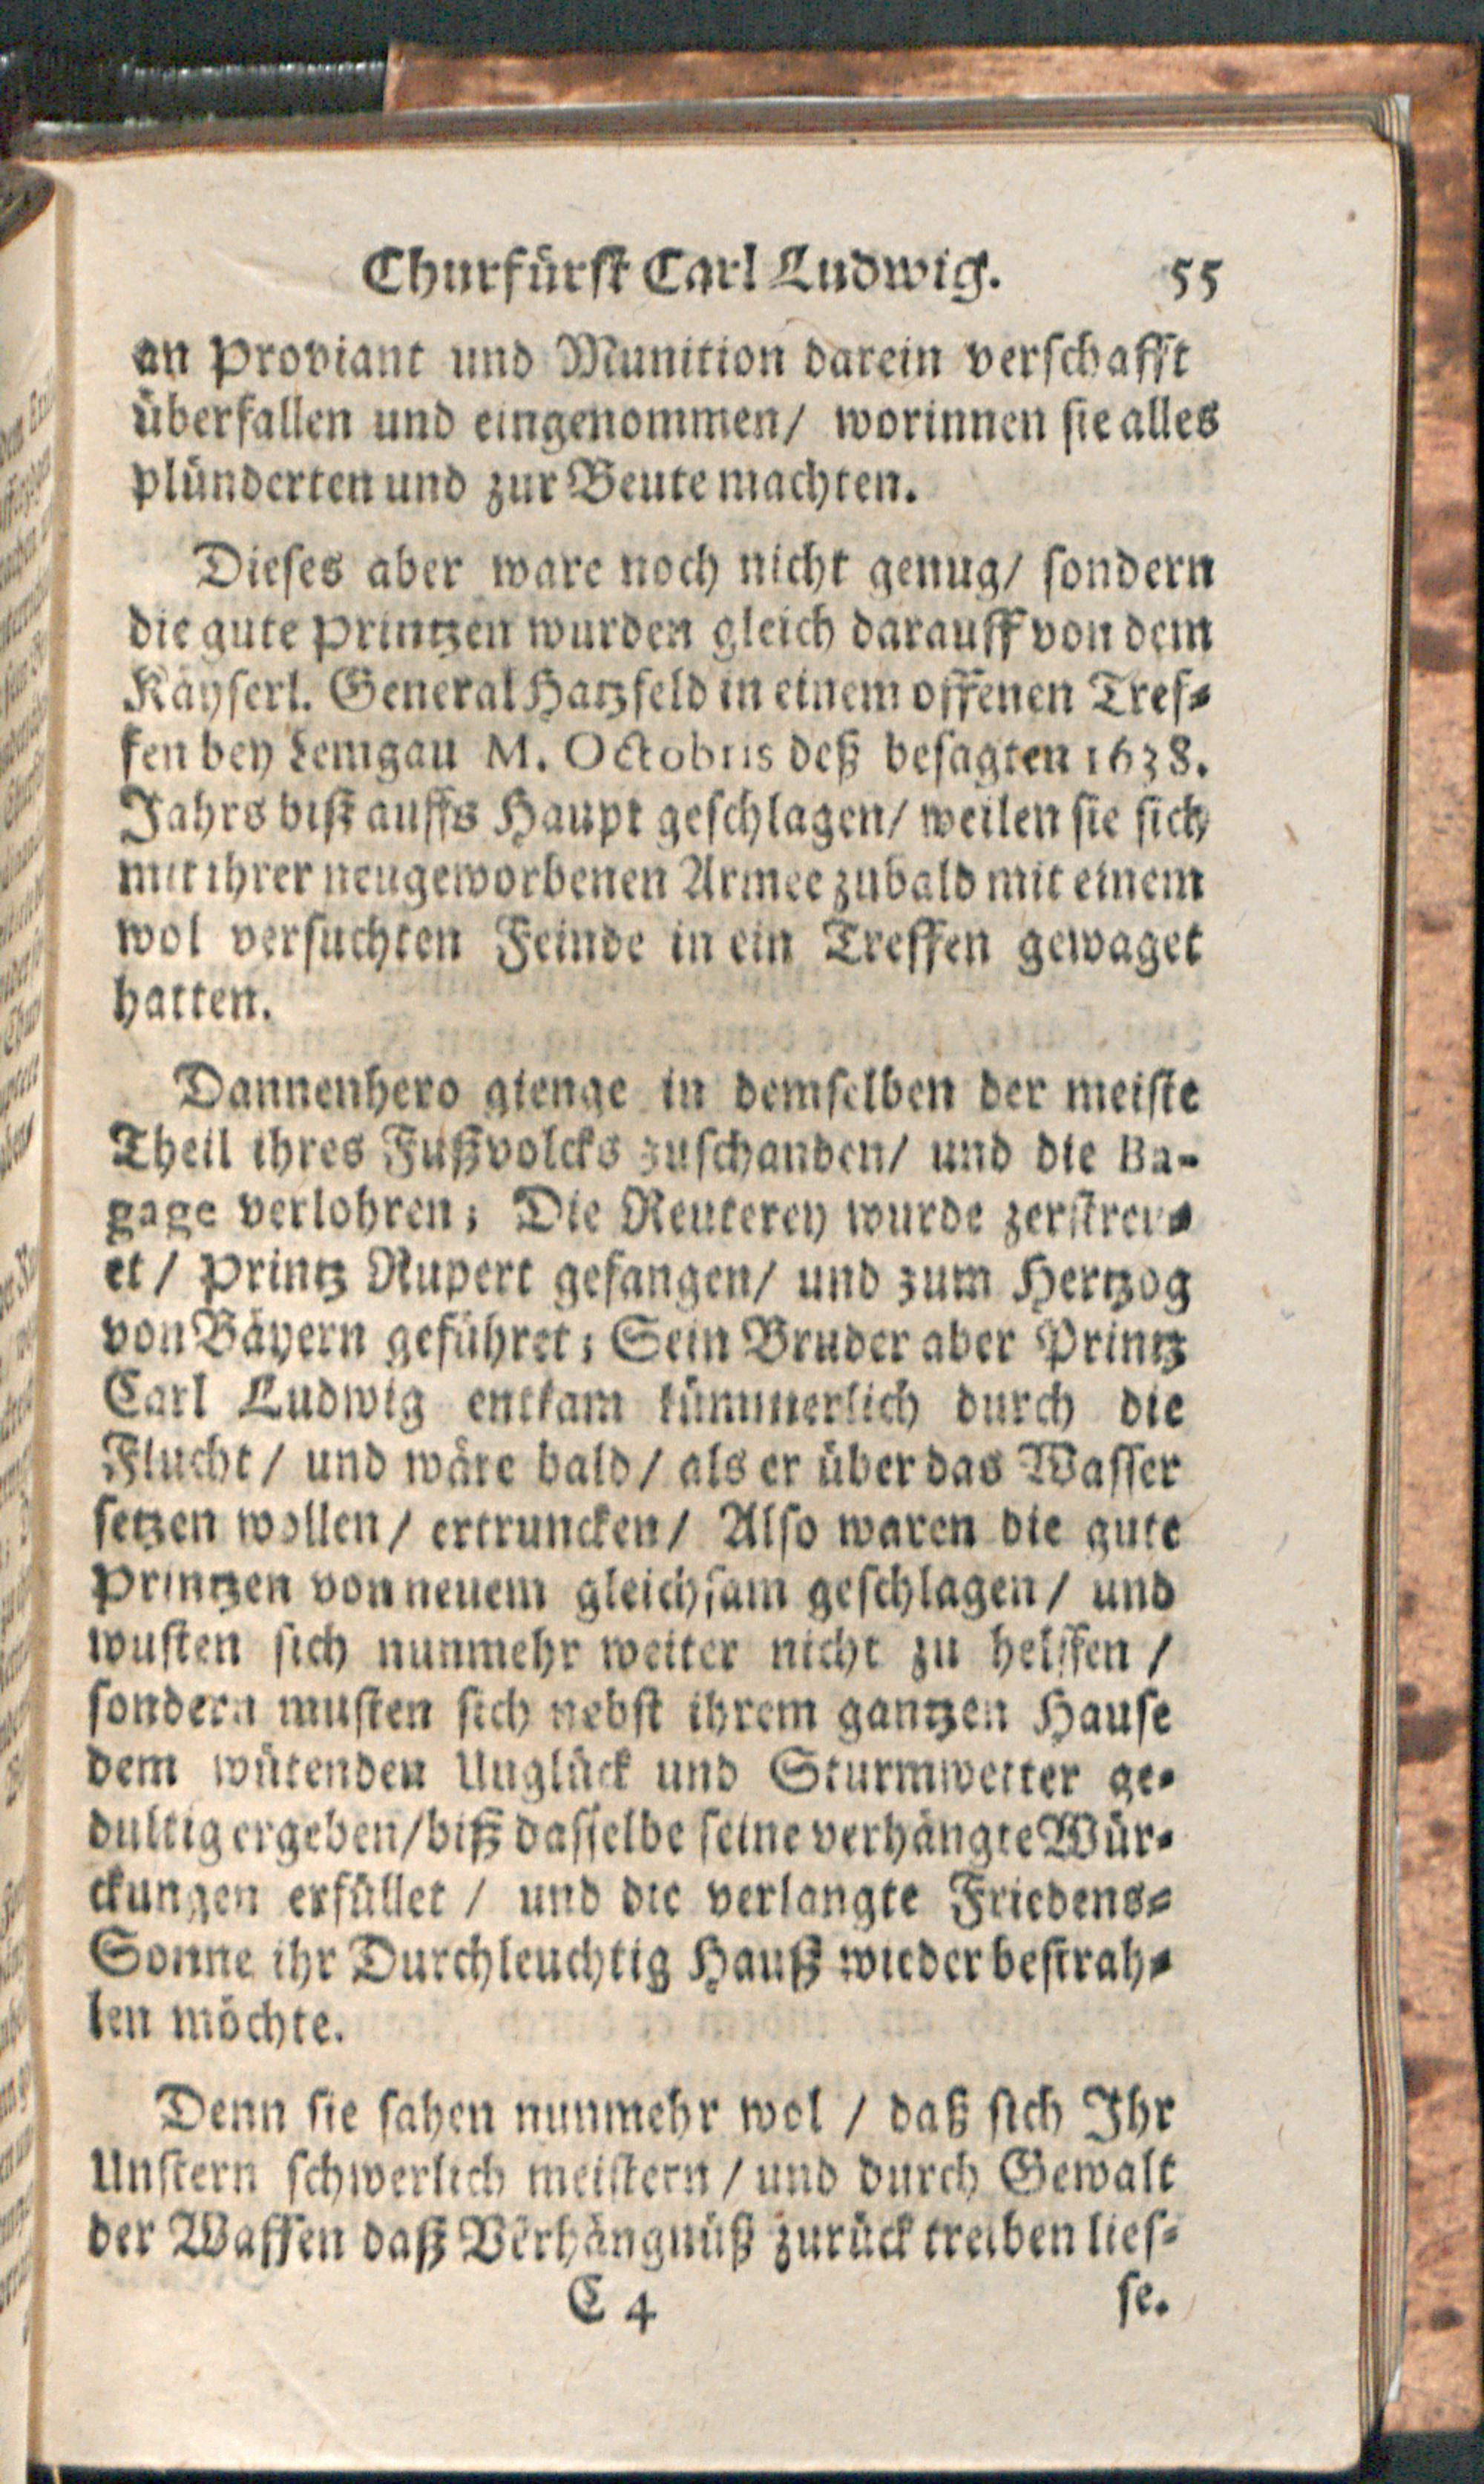 Churfürst Carl Ludwig. 55
an Proviant und Munition darein verschafft
überfallen und eingenommen/ worinnen sie alles
plünderten und zur Beute machten.
Dieses aber ware noch nicht genug/ sondern
die gute Printzen wurden gleich darauff von dem
Käyserl. General Hatzfeld in einem offenen Tref⸗
fen bey Lemgau M. Octobris deß besagten 1638.
Jahrs biß auffs Haupt geschlagen/ weilen sie sich
mit ihrer neugeworbenen Armee zubald mit einem
wol versuchten Feinde in ein Treffen gewaget
hatten.
Dannenhero gienge in demselben der meiste
Theil ihres Fußvolcks zuschanden/ und die Ba-
gage verlohren; Die Reuterey wurde zerstreu⸗
et / Printz Rupert gefangen/ und zum Hertzog
von Bäyern geführet; Sein Bruder aber Printz
Carl Ludwig entkam kümmerlich durch die
Flucht / und wäre bald / als er über das Wasser
setzen wollen / ertruncken / Also waren die gute
Printzen von neuem gleichsam geschlagen / und
wusten sich nunmehr weiter nicht zu helffen /
sondern musten sich nebst ihrem gantzen Hause
dem wütenden Unglück und Sturmwetter ge⸗
dultig ergeben/ biß dasselbe seine verhängte Wür⸗
ckungen erfüllet / und die verlangte Friedens⸗
Sonne ihr Durchleuchtig Hauß wieder bestrah⸗
len möchte.
Denn sie sahen nunmehr wol / daß sich Ihr
Unstern schwerlich meistern / und durch Gewalt
der Waffen daß Verhängnüß zurück treiben lies⸗
C 4 se.